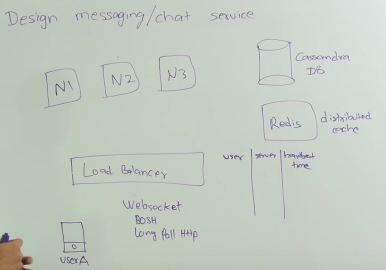 Design messaging/chat service
N1 N2 N3
Cassandra
DB
Redis distributed
cache
user server heartbeat
time
Load Balancer
Websocket
BOSH
Long Poll Http
userA